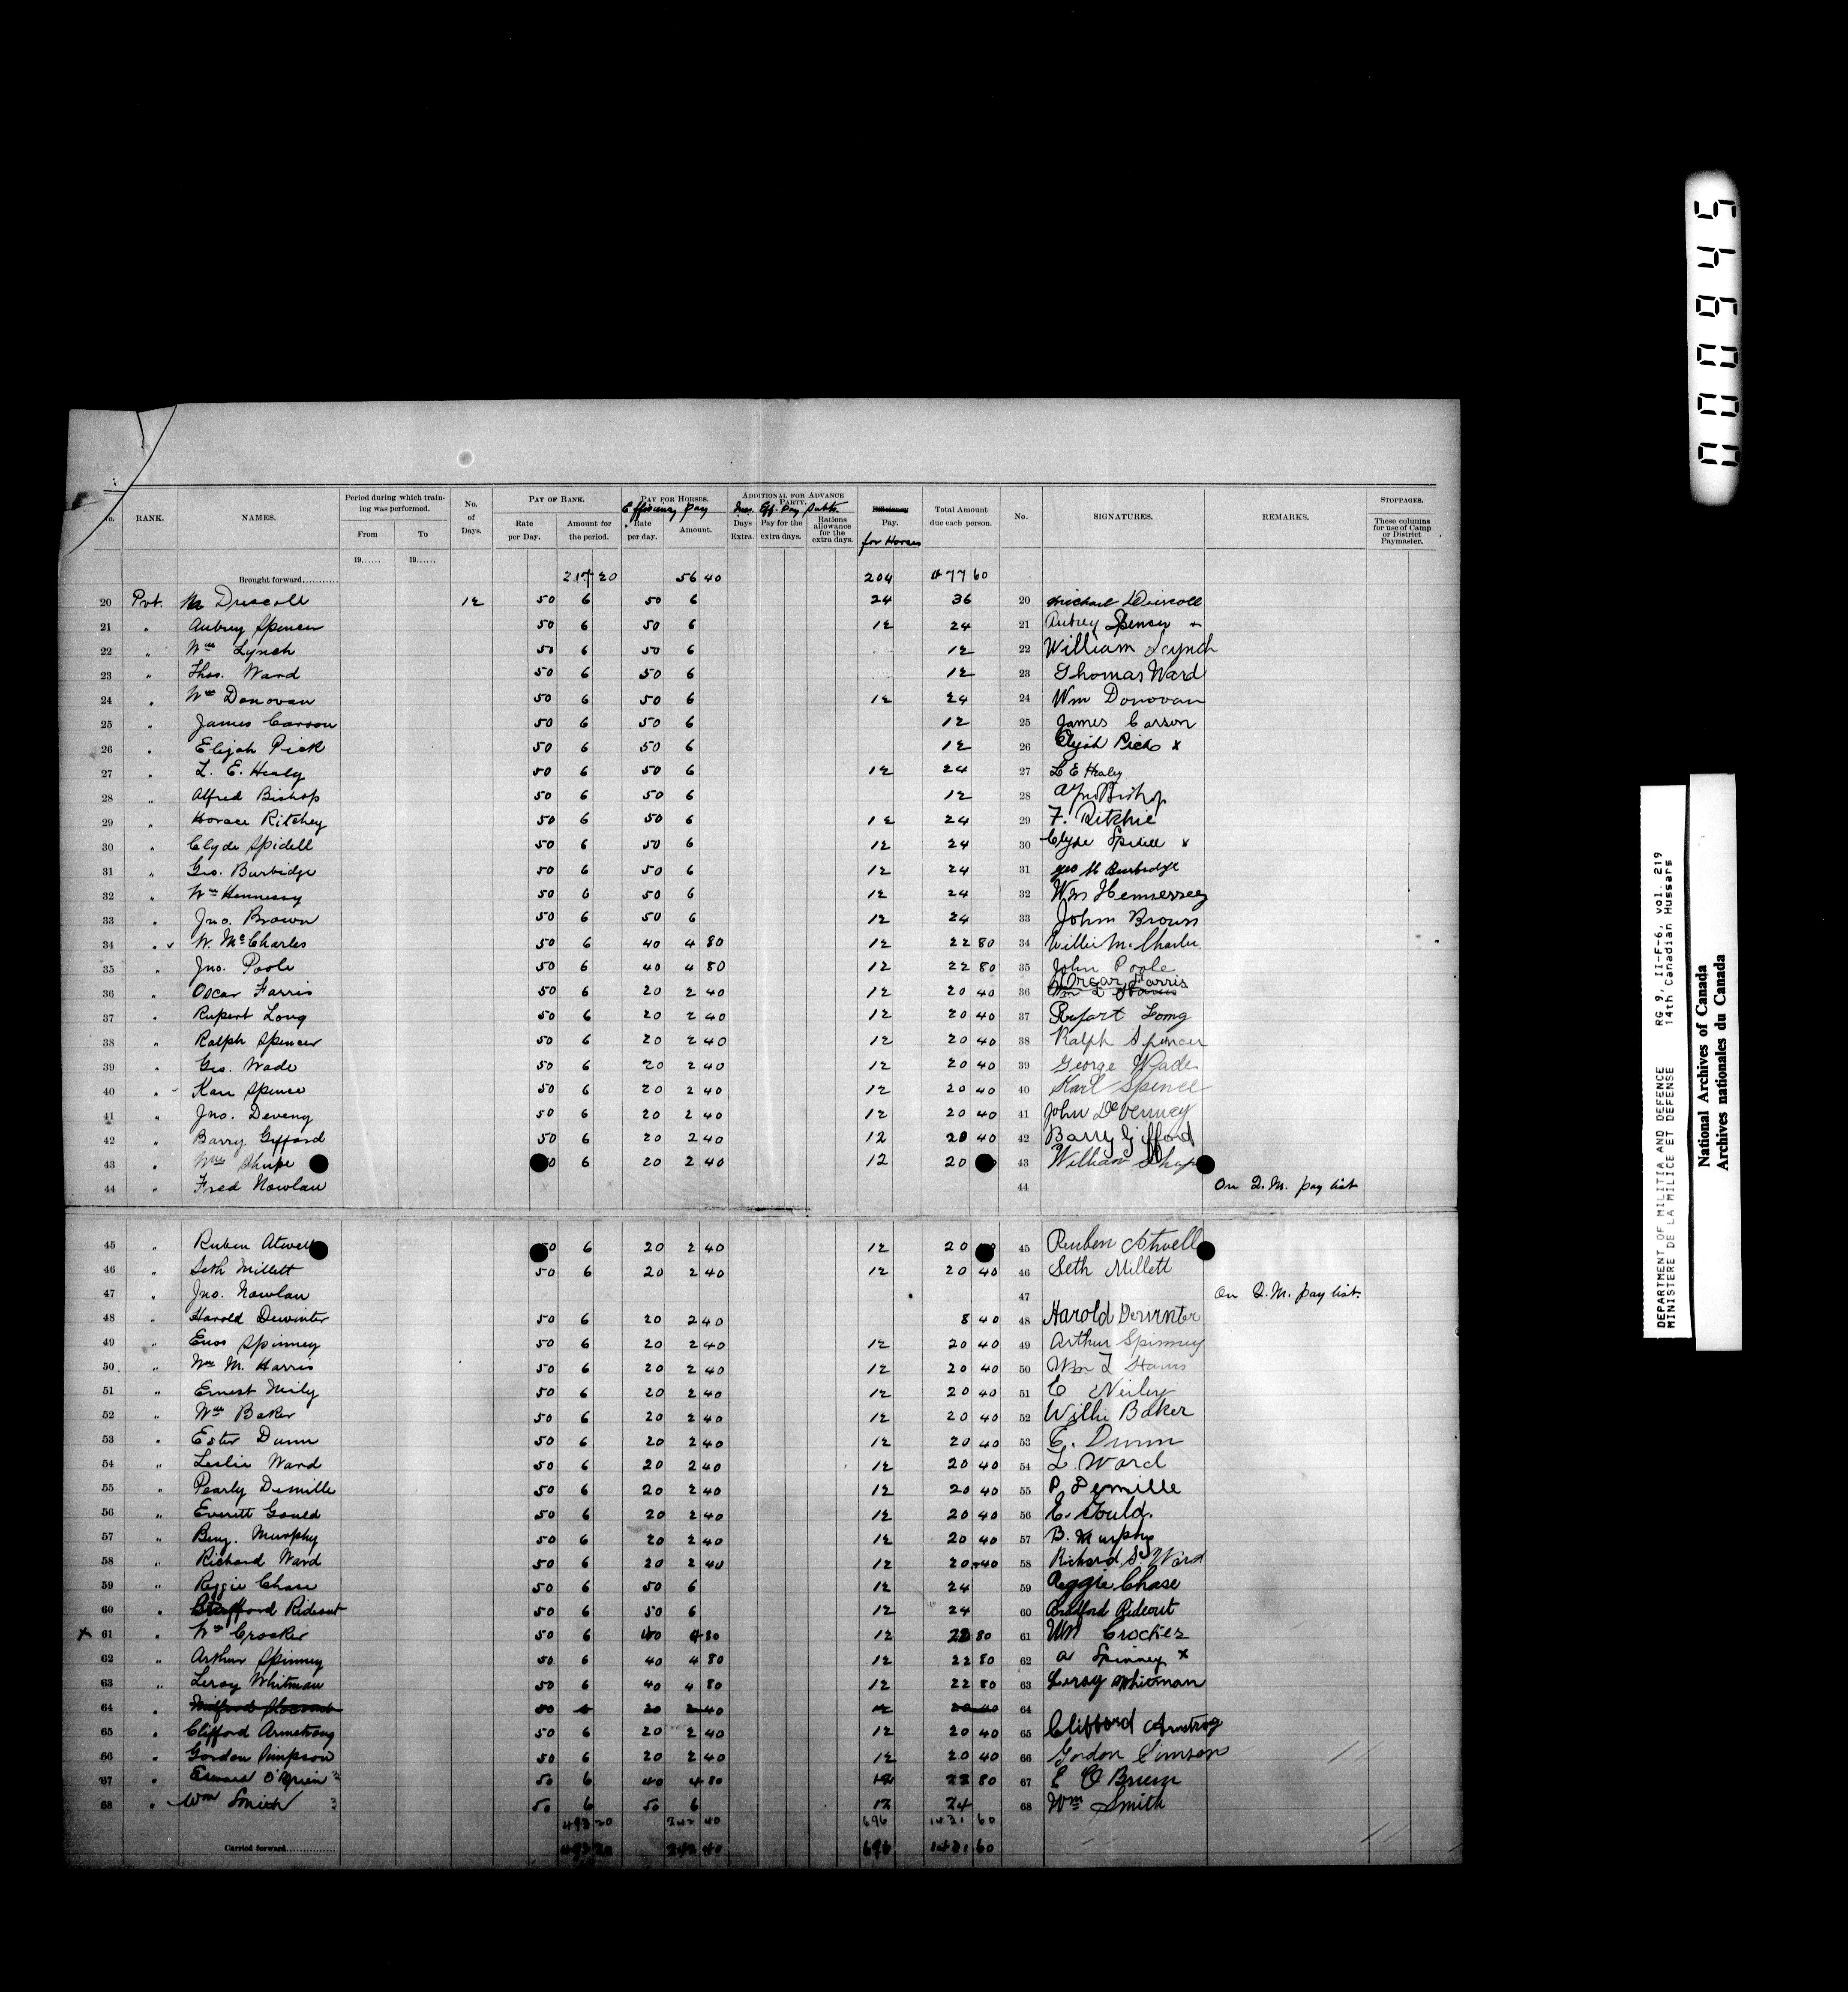 No. RANK. NAMES. Period during which training was performed. From To No. of Days. PAY OF RANK. Rate per Day. Amount for the period. PAY FOR HORSES. Efficiency Pay Rate per day. Amount. ADDITIONAL FOR ADVANCE PARTY. Eff. Pay Subts. Days Extra. Pay for the extra days. Rations allowance for the extra days. Efficiency Pay. for Horses Total Amount due each person. No. SIGNATURES. REMARKS. STOPPAGES. These columns for use of Camp or District Paymaster.
19...... 19......
Brought forward........... 217 20 56 40 204 477 60
20 Pvt. M Driscoll 12 50 6 50 6 24 36 20 Michael Driscoll
21 " Aubrey Spencer 50 6 50 6 12 24 21 Aubrey Spencer
22 " Wm Lynch 50 6 50 6 12 22 William Lynch
23 " Thos. Ward 50 6 50 6 12 23 Thomas Ward
24 " Wm Donovan 50 6 50 6 12 24 24 Wm Donovan
25 " James Carson 50 6 50 6 12 25 James Carson
26 " Elijah Pick 50 6 50 6 12 26 Elijah Pick x
27 " L. E. Healy 50 6 50 6 12 24 27 L E Healy
28 " Alfred Bishop 50 6 50 6 12 28 Alfred Bishop
29 " Horace Ritchey 50 6 50 6 12 24 29 F. Ritchie
30 " Clyde Spidell 50 6 50 6 12 24 30 Clyde Spidell x
31 " Geo. Burbidge 50 6 50 6 12 24 31 Geo H Burbidge
32 " Wm Hennessy 50 6 50 6 12 24 32 Wm Hennessey
33 " Jno. Brown 50 6 50 6 12 24 33 John Brown
34 " ✓ W. McCharles 50 6 40 4 80 12 22 80 34 Willie McCharles
35 " Jno. Poole 50 6 40 4 80 12 22 80 35 John Poole
36 " Oscar Farris 50 6 20 2 40 12 20 40 36 Oscar Farris
37 " Rupert Long 50 6 20 2 40 12 20 40 37 Rupart Long
38 " Ralph Spencer 50 6 20 2 40 12 20 40 38 Ralph Spencer
39 " Geo. Wade 50 6 20 2 40 12 20 40 39 George Wade
40 " Karl Spence 50 6 20 2 40 12 20 40 40 Karl Spence
41 " Jno. Deveny 50 6 20 2 40 12 20 40 41 John DeVenney
42 " Barry Gifford 50 6 20 2 40 12 20 40 42 Barry Gifford
43 " Wm Shupe 6 20 2 40 12 20 43 William Shup
44 " Fred Nowlan 44 On Q.M. pay list
45 " Ruben Atwell 50 6 20 2 40 12 20 45 Reuben Atwell
46 " Seth Millett 50 6 20 2 40 12 20 40 46 Seth Millett
47 " Jno. Nowlan 47 On Q.M. pay list.
48 " Harold Dewinter 50 6 20 2 40 8 40 48 Harold Dewinter
49 " Enos Spinney 50 6 20 2 40 12 20 40 49 Arthur Spinney
50 " Wm M. Harris 50 6 20 2 40 12 20 40 50 Wm L Harris
51 " Ernest Neily 50 6 20 2 40 12 20 40 51 E Neiley
52 " Wm Baker 50 6 20 2 40 12 20 40 52 Willie Baker
53 " Ester Dunn 50 6 20 2 40 12 20 40 53 E. Dunn
54 " Leslie Ward 50 6 20 2 40 12 20 40 54 L. Ward
55 " Pearly Demille 50 6 20 2 40 12 20 40 55 P. Demille
56 " Everett Gould 50 6 20 2 40 12 20 40 56 E. Gould.
57 " Benj. Murphy 50 6 20 2 40 12 20 40 57 B. Murphy
58 " Richard Ward 50 6 20 2 40 12 20 40 58 Richard S. Ward
59 " Reggie Chase 50 6 50 6 12 24 59 Reggie Chase
60 " Rideout 50 6 50 6 12 24 60 Bradford Rideout
x 61 " Wm Crocker 50 6 40 4 80 12 22 80 61 Wm Crocker
62 " Arthur Spinney 50 6 40 4 80 12 22 80 62 A Spinney x
63 " Leroy Whitman 50 6 40 4 80 12 22 80 63 Leroy Whitman
64 " Milford 50 6 20 2 40 12 20 40 64
65 " Clifford Armstrong 50 6 20 2 40 12 20 40 65 Clifford Armstrog
66 " Gordon Simpson 50 6 20 2 40 12 20 40 66 Gordon Simson
67 " Edward O'Brien 50 6 40 4 80 12 22 80 67 E O Brien
68 " Wm Smith 50 6 50 6 12 24 68 Wm Smith
493 20 242 40 696 1431 60
Carried forward.............. 493 20 242 40 696 1431 60
000 9 45
DEPARTMENT OF MILITIA AND DEFENCE RG 9, II-F-6, vol. 219
MINISTERE DE LA MILICE ET DEFENSE 14th Canadian Hussars
National Archives of Canada
Archives nationales du Canada